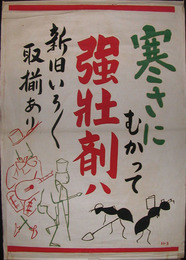 寒さに
むかって
強壮剤ハ
新旧いろ〳〵
取揃あり